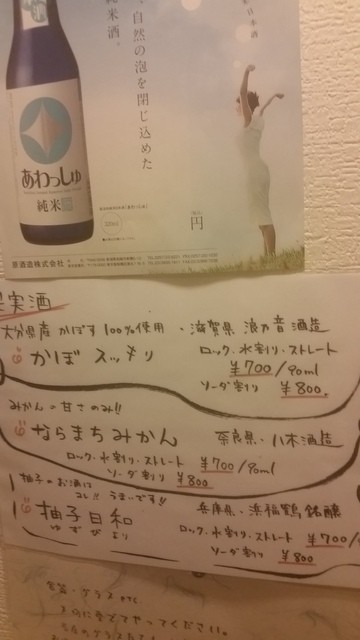 自然の泡を閉じ込めた
純米酒。
日本酒
あわっしゅ
純米
円
原酒造株式会社
果実酒
大分県産 かぼす 100%使用 ・滋賀県 浪乃音酒造
かぼスッキリ
ロック・水割り・ストレート
¥700/90ml
ソーダ割り ¥800.
みかんの甘さのみ!!
ならまちみかん 奈良県・八木酒造
ロック・水割り・ストレート ¥700/90ml
ソーダ割り ¥800
柚子のお酒は
コレ!! うまーです!!
柚子日和 兵庫県・浜福鶴銘醸
ゆずびより
ロック・水割り・ストレート ¥700/
ソーダ割り ¥800